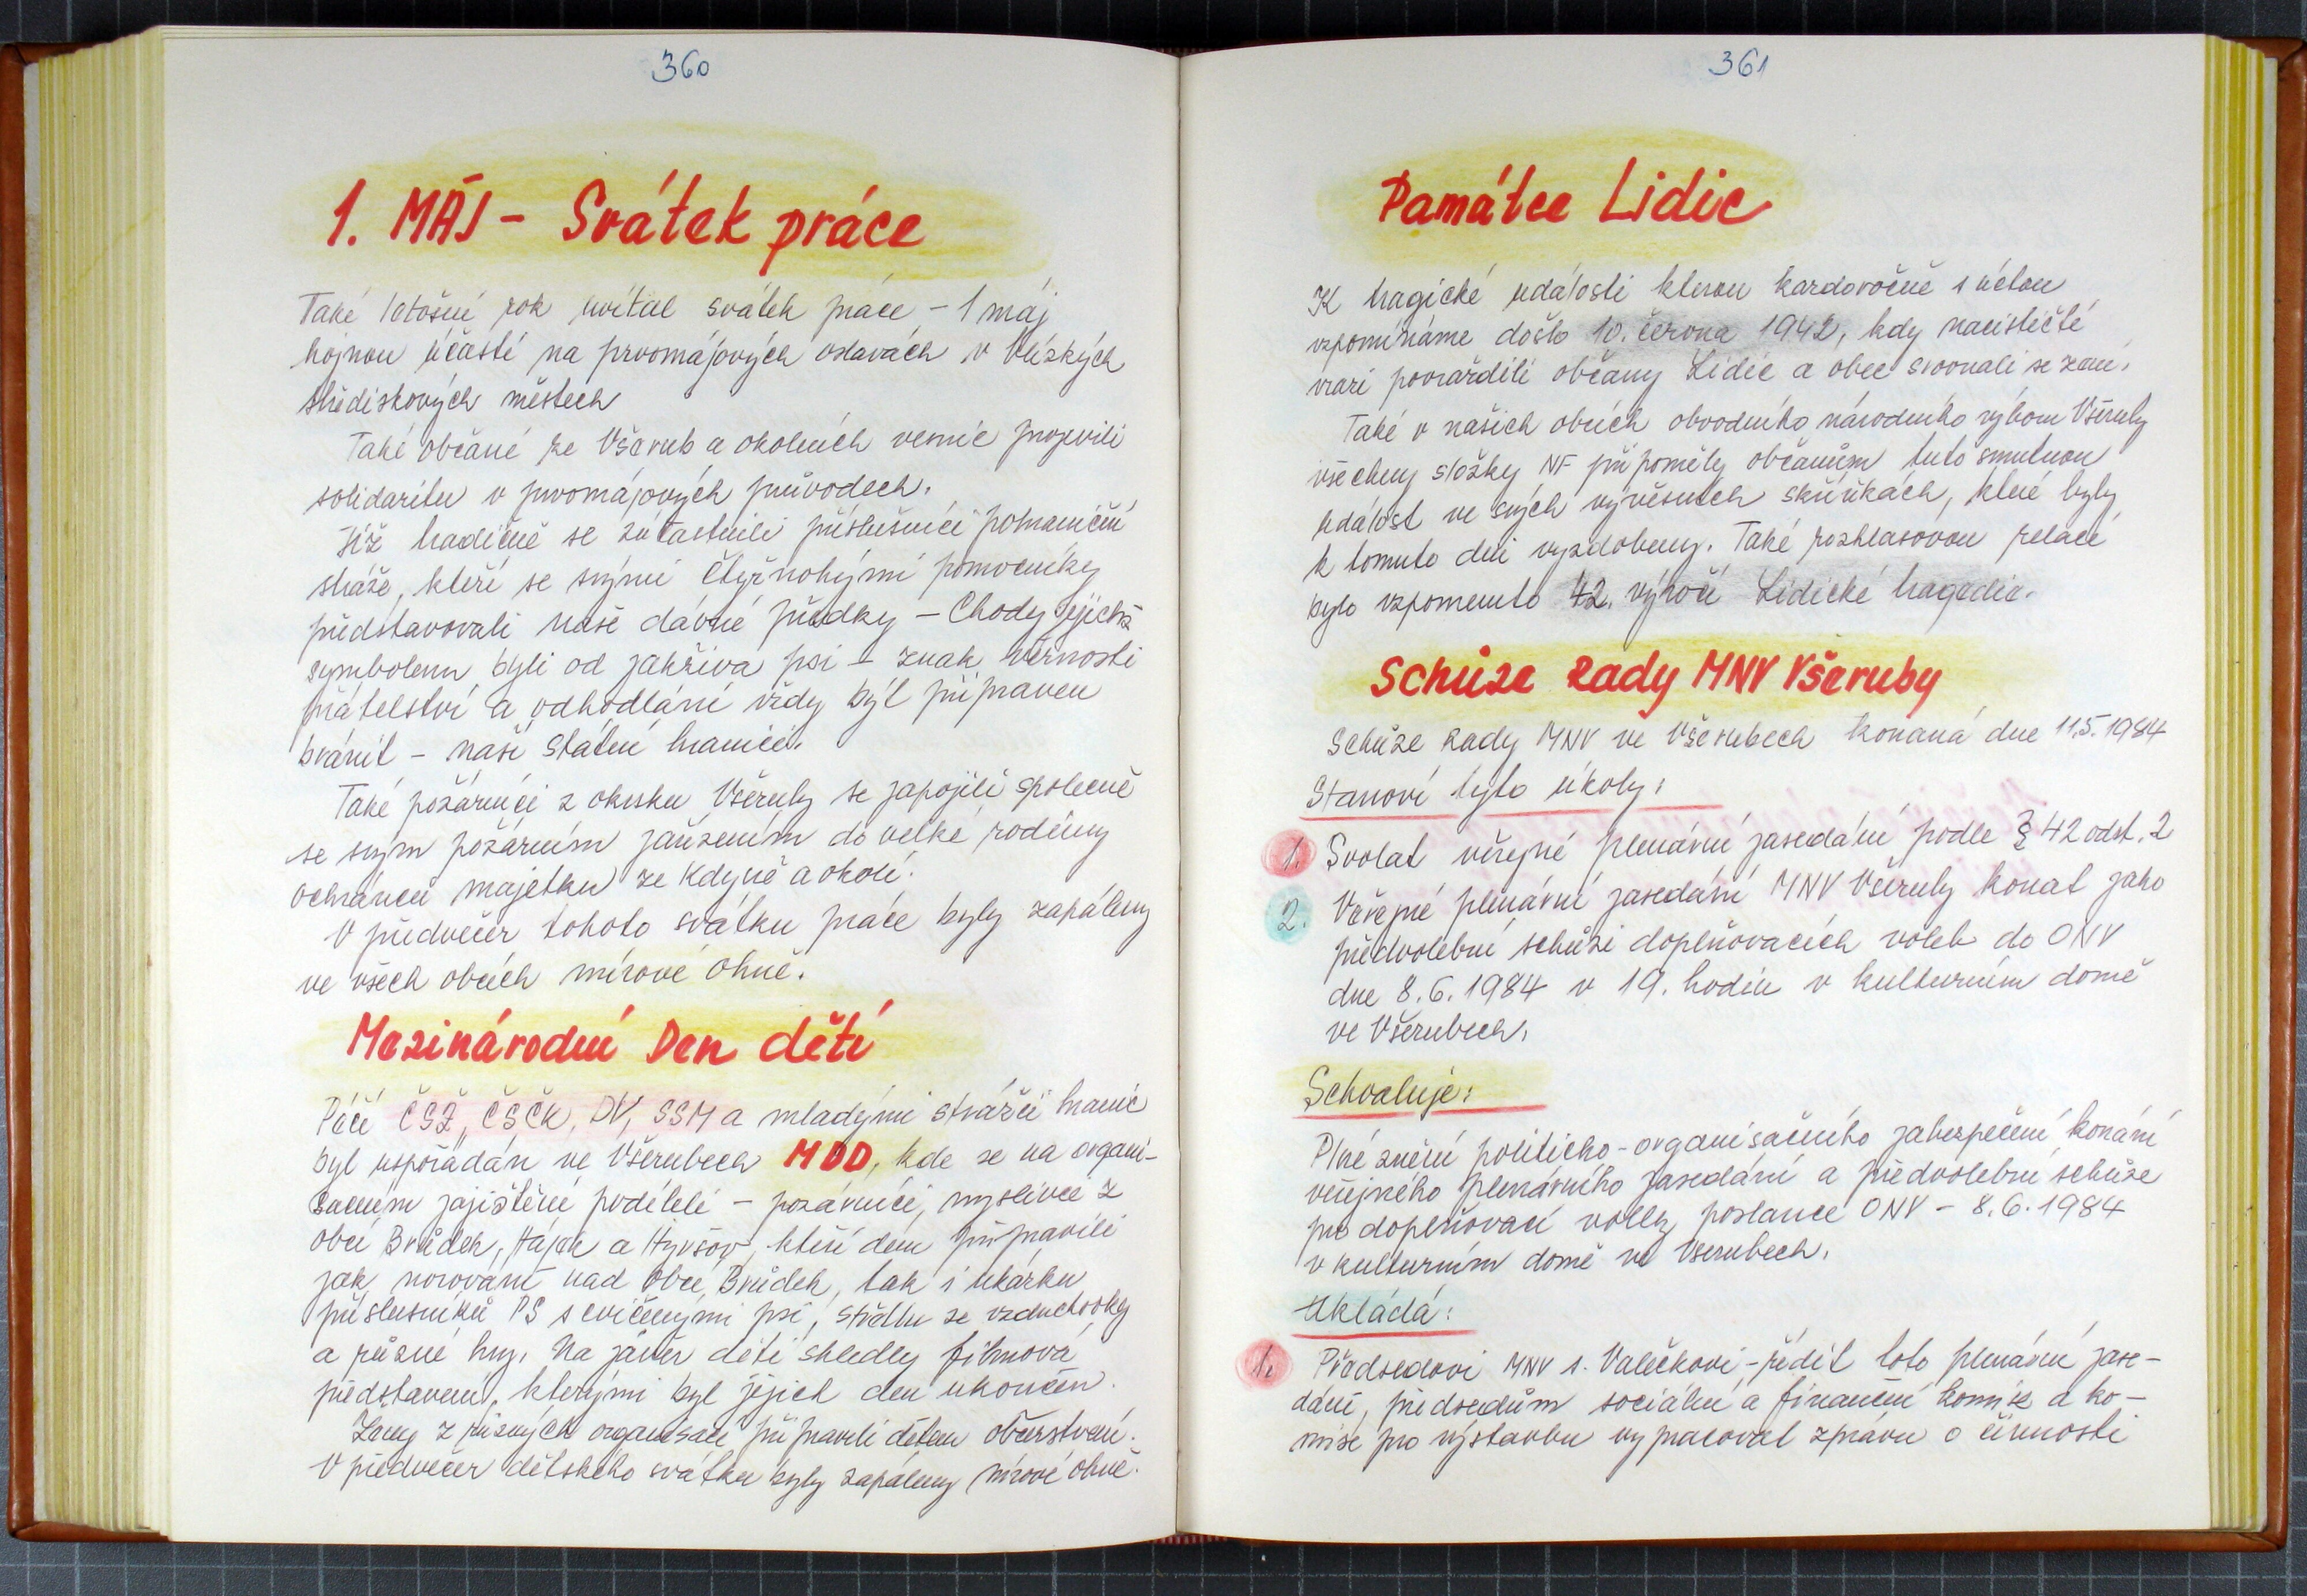 360
1. MÁJ - Svátek práce
Také letošní rok uvítal svátek práce - 1 máj
hojnou účastí na prvomájových oslavách v blízkých
střediskových městech
Také občané ze Všerub a okolních vesnic projevili
solidaritu v prvomájových průvodech.
Již tradičně se zúčastnili příslušníci pohraniční
stráže, kteří se svými čtyřnohými pomocníky
představovali naše dávné předky - Chody jejichž
symbolem byli od jakživa psi - znak věrnosti
přátelství a odhodlání vždy být připraven
bránit - naši státní hranici.
Také požárníci z okrsku Všeruby se zapojili společně
se svým požárním zařízením do velké rodiny
ochránců majetku ze Kdyně a okolí.
V předvečer tohoto svátku práce byly zapáleny
ve všech obcích mírové ohně.
Mezinárodní Den dětí
Péčí ČSŽ, ČSČK, DV, SSM a mladými strážci hranic
byl uspořádán ve Všerubech MDD, kde se na organi-
sačním zajištění podíleli - požárníci, myslivci z
obcí Brůdek, Hájek a Hyršov, kteří dem připravili
jak norování nad obcí Brůdek, tak i ukázku
příslušníků PS s cvičenými psi, střelbu ze vzduchovky
a různé hry. Na závěr děti shledly filmová
představení, kterými byl jejich den ukončen.
Ženy z různých organisací připravili dětem občerstvení.
V předvečer dětského svátku byly zapáleny mírové ohně.
361
Památce Lidic
K tragické události kterou každoročně s úctou
vzpomínáme došlo 10. června 1942, kdy nacističtí
vrazi povraždili občany Lidic a obec srovnali se zemí.
Také v našich obcích obvodního národního výboru Všeruby
všechny složky NF připoměly občanům tuto smutnou
událost ve svých vývěsních skříňkách, které byly
k tomuto dni vyzdobeny. Také rozhlasovou relací
bylo vzpomenuto 42. výročí Lidické tragedie.
Schůze Rady MNV Všeruby
Schůze Rady MNV ve Všerubech konaná dne 11.5.1984
Stanoví tyto úkoly:
1. Svolat veřejné plenární zasedání podle § 42 odst. 2
2. Veřejné plenární zasedání MNV Všeruby konat jako
předvolební schůzi doplňovacích voleb do ONV
dne 8.6.1984 v 19. hodin v kulturním domě
ve Všerubech.
Schvaluje:
Plné znění politicko-organisačního zabezpečení konání
veřejného plenárního zasedání a předvolební schůze
pro doplňovací volby poslance ONV - 8.6.1984
v kulturním domě ve Všerubech.
Ukládá:
1. Předsedovi MNV s. Valečkovi - řídit toto plenární zase-
dání, předsedům sociální a finanční komise a ko-
mise pro výstavbu vypracovat zprávu o činnosti